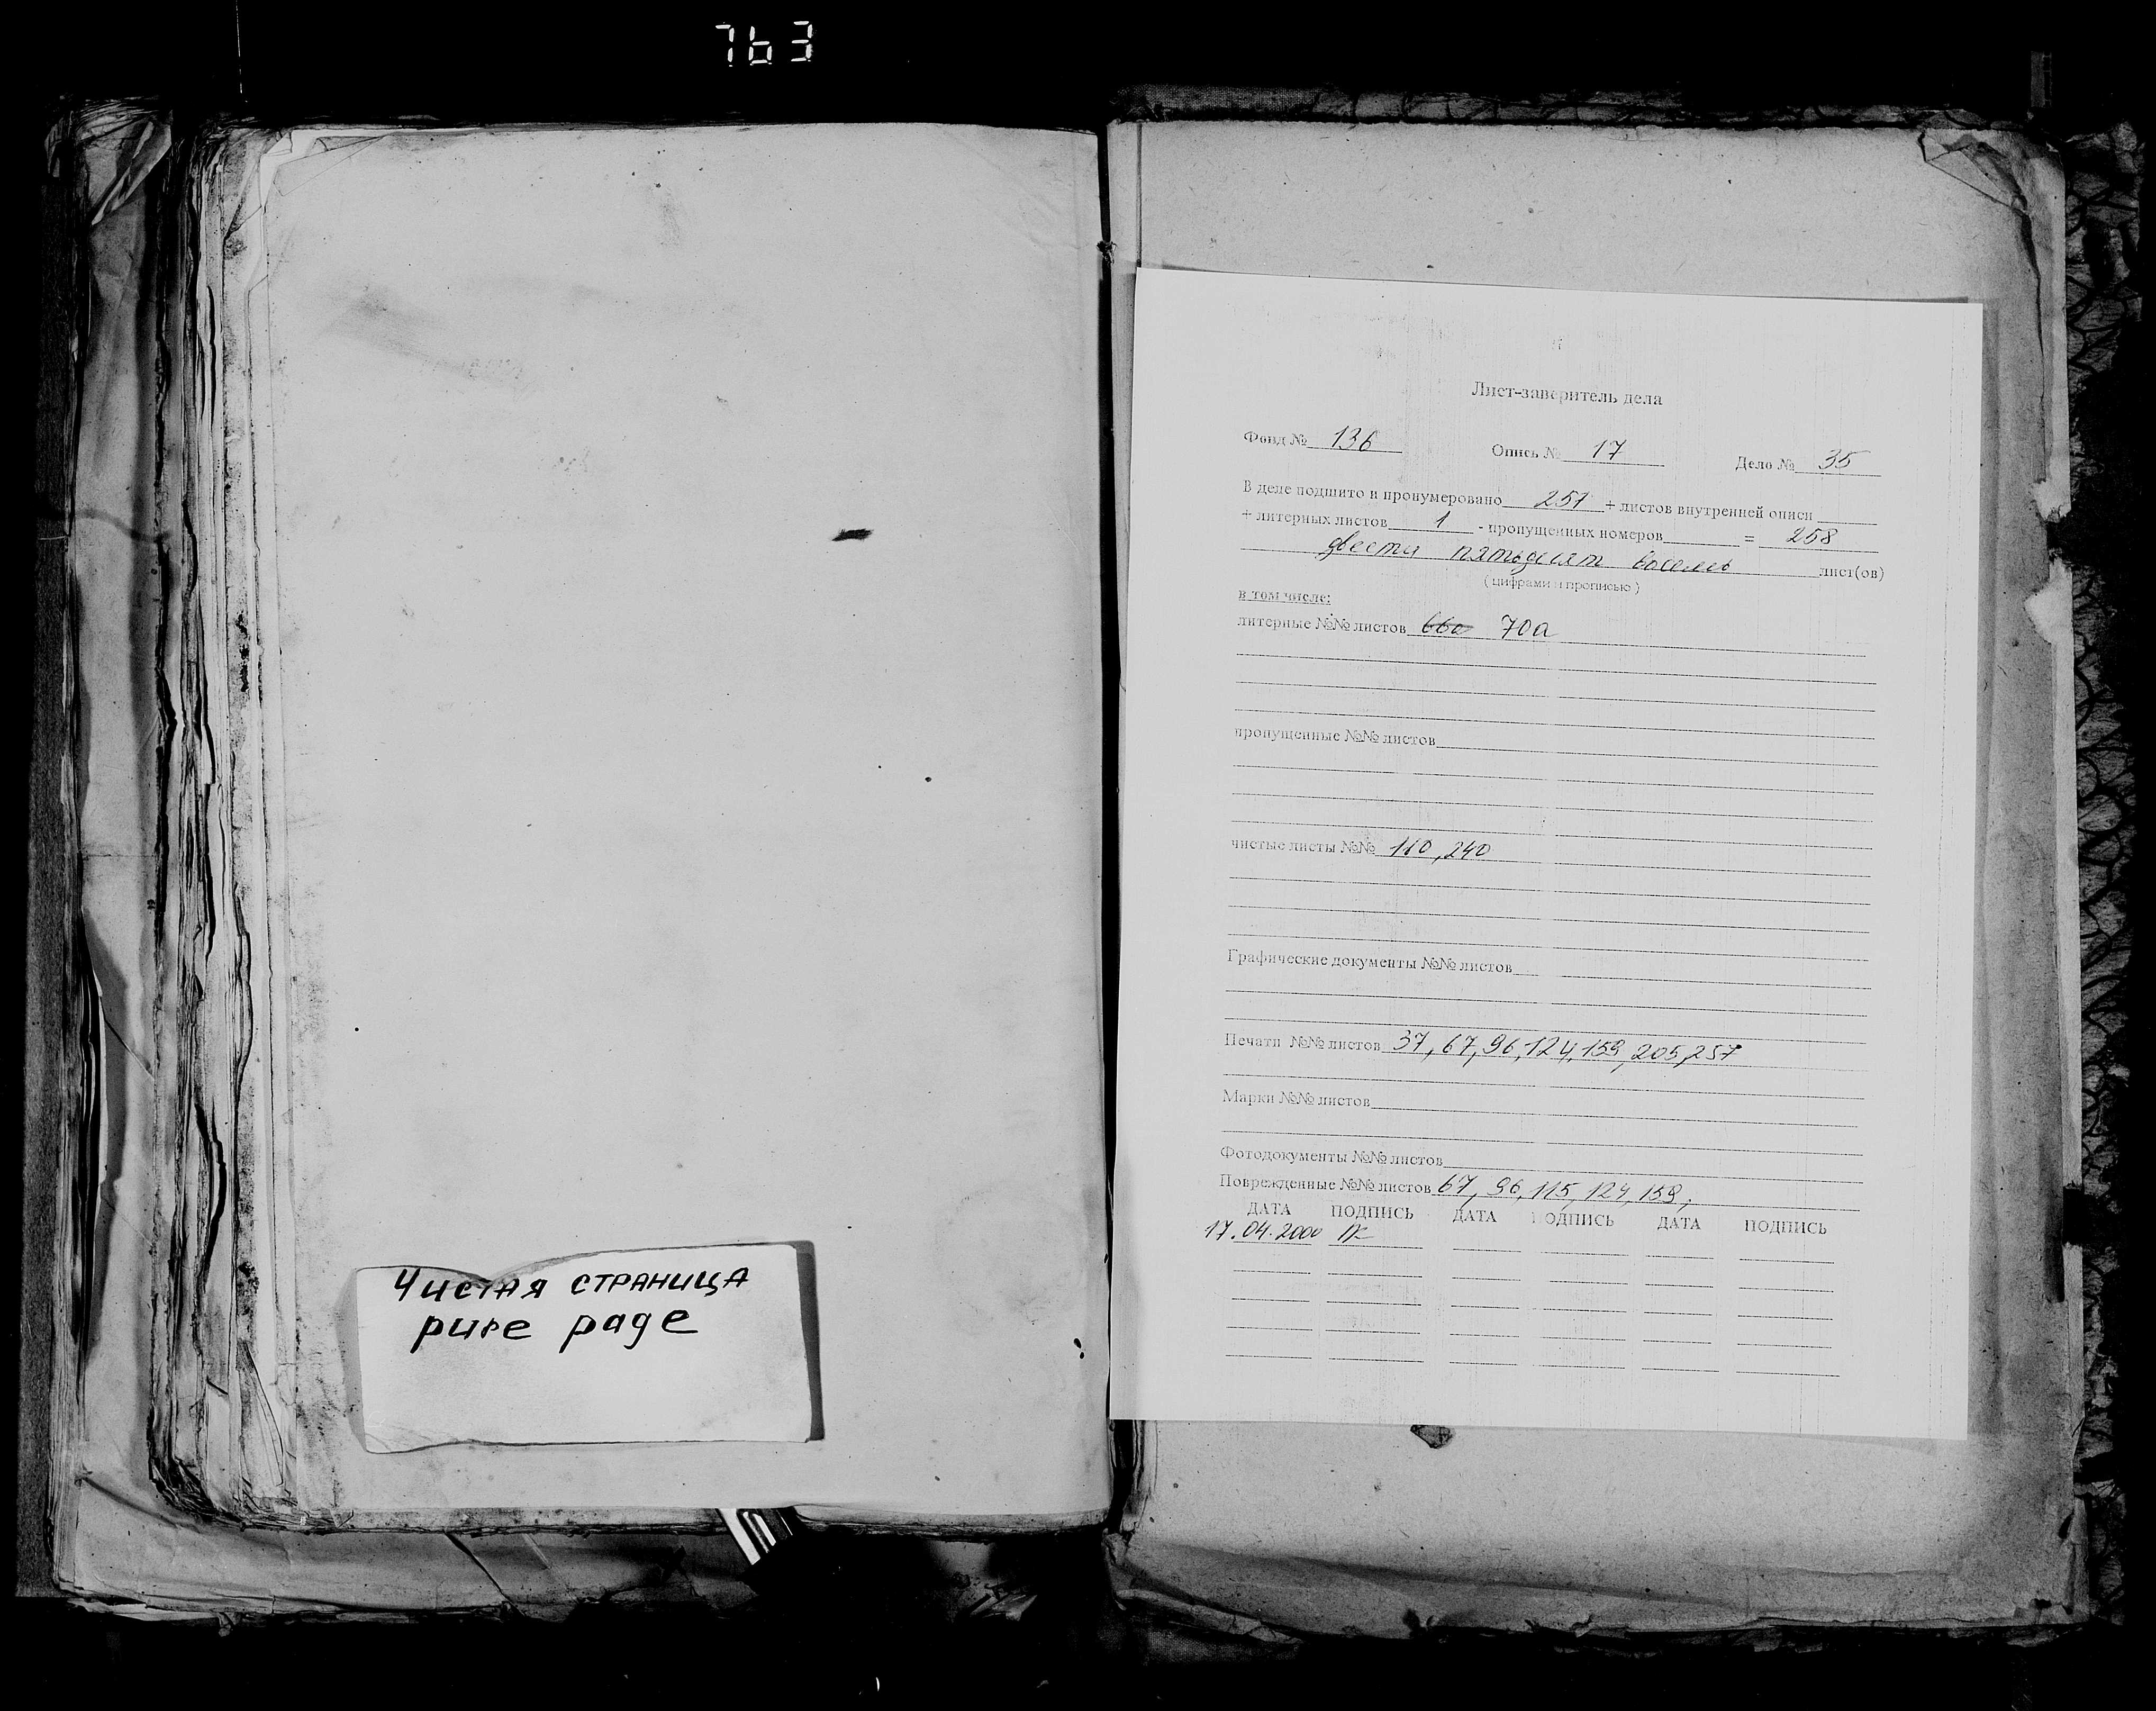 763
Чистая страница
pure page
Лист-заверитель дела
Фонд № 136 Опись № 17 Дело № 35
В деле подшито и пронумеровано 257 + листов внутренней описи
+ литерных листов 1 - пропущенных номеров = 258
двести пятьдесят восемь лист(ов)
(цифрами и прописью)
в том числе:
литерные №№ листов 70а
пропущенные №№ листов
чистые листы №№ 110, 240
Графические документы №№ листов
Печати №№ листов 37, 67, 96, 124, 159, 205, 257
Марки №№ листов
Фотодокументы №№ листов
Поврежденные №№ листов 67, 96, 115, 124, 159,
ДАТА ПОДПИСЬ ДАТА ПОДПИСЬ ДАТА ПОДПИСЬ
17.04.2000